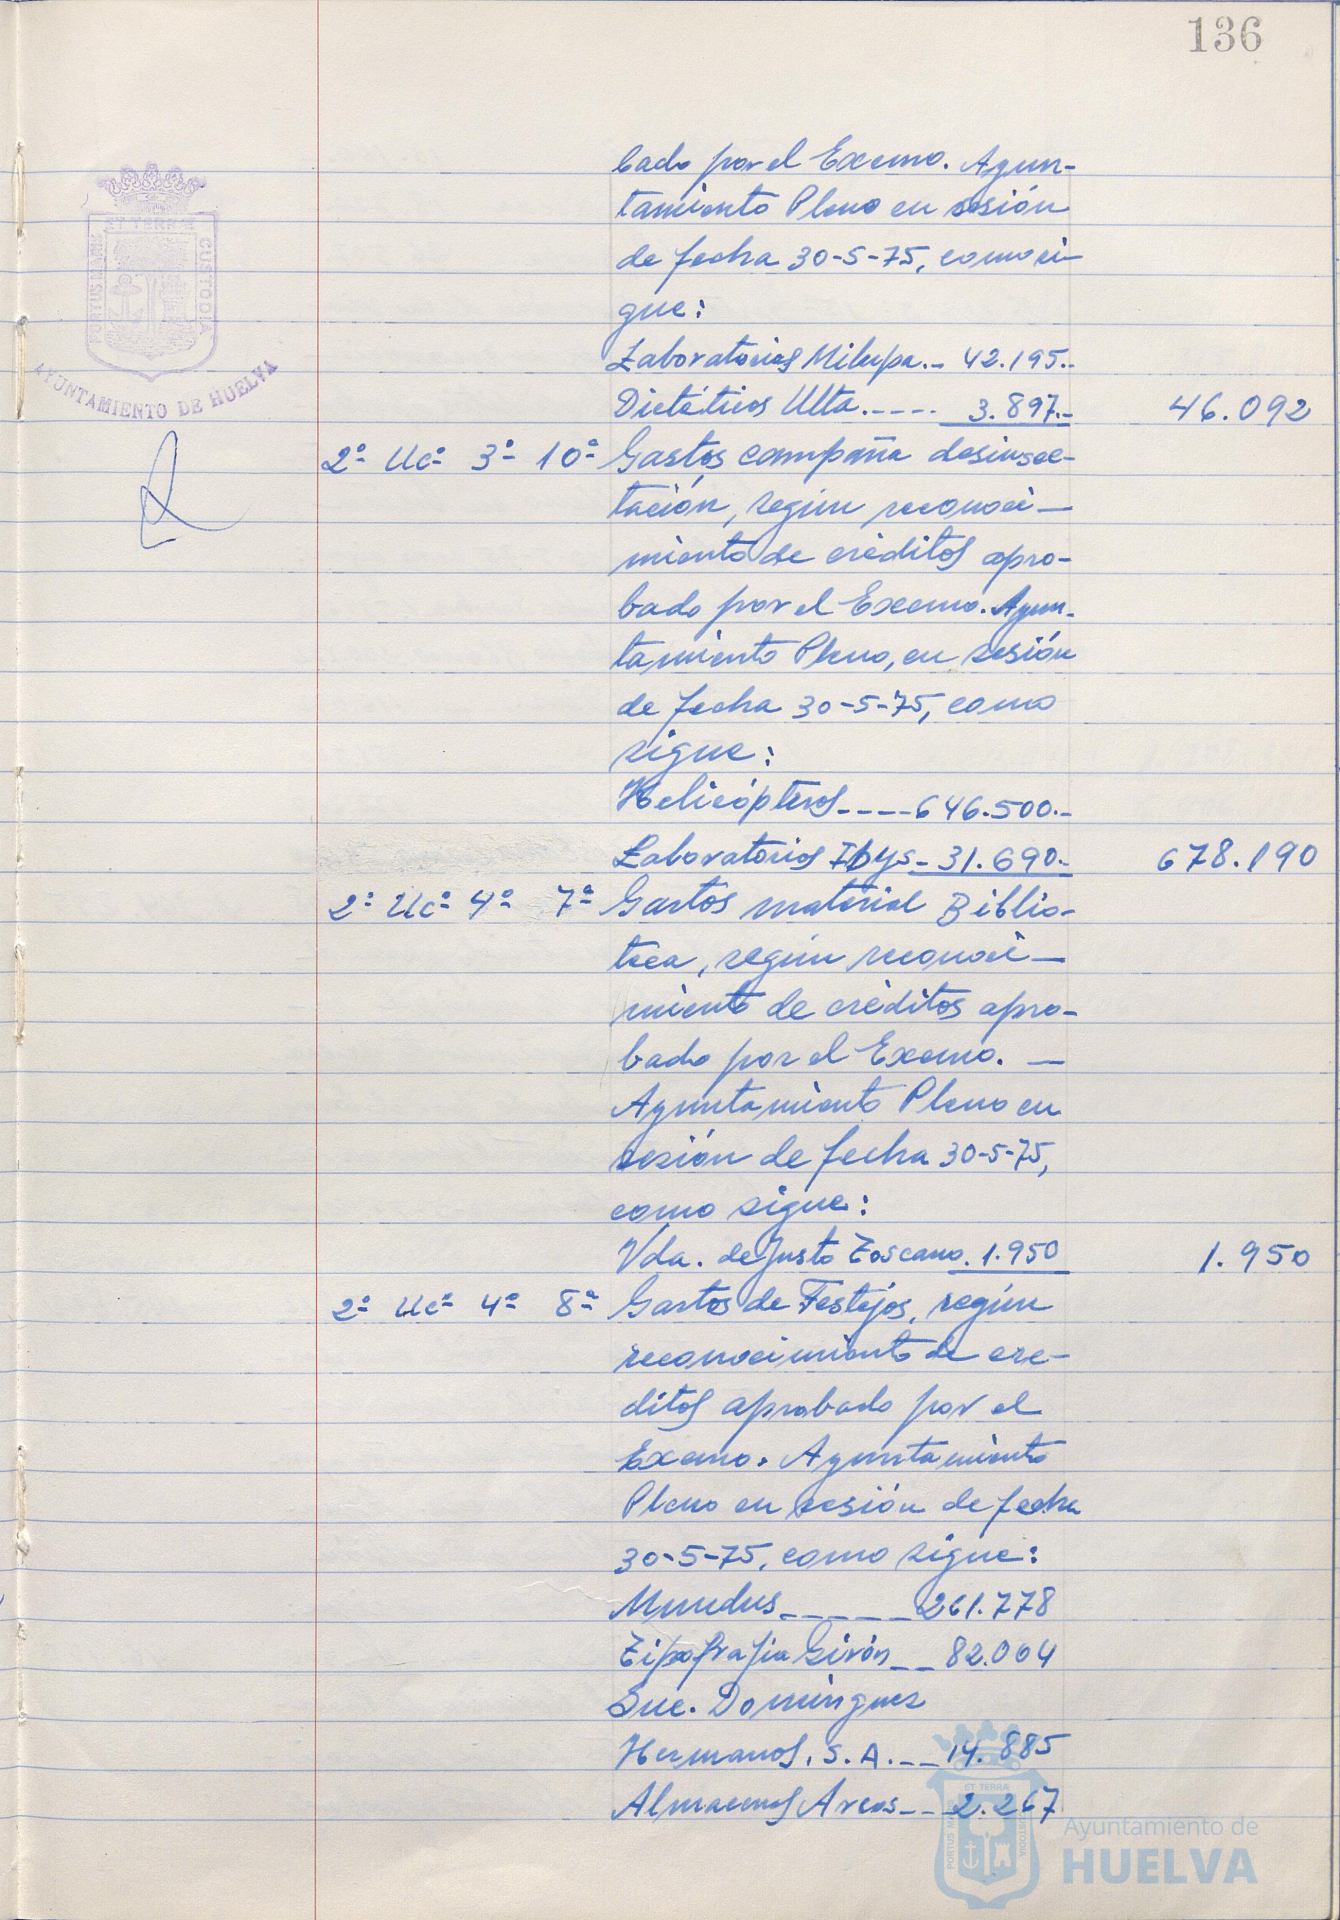 136
bado por el Excmo. Ayun-
tamiento Pleno en sesión
de fecha 30-5-75, como si-
gue:
Laboratorios Milupa.- 42.195.-
Dietéticos Ulta.---- 3.897.- 46.092
2º Ucº 3º 10º Gastos campaña desinsec-
tación, según reconoci-
miento de créditos apro-
bado por el Excmo. Ayun-
tamiento Pleno, en sesión
de fecha 30-5-75, como
sigue:
Helicópteros----646.500.-
Laboratorios Ibys- 31.690.- 678.190
2º Ucº 4º 7º Gastos material Biblio-
teca, según reconoci-
miento de créditos apro-
bado por el Excmo. -
Ayuntamiento Pleno en
sesión de fecha 30-5-75,
como sigue:
Vda. de Justo Toscano. 1.950 1.950
2º Ucº 4º 8º Gastos de Festejos, según
reconocimiento de cre-
ditos aprobado por el
Excmo. Ayuntamiento
Pleno en sesión de fecha
30-5-75, como sigue:
Mundus------261.778
Tipografia Girón-- 82.004
Suc. Dominguez
Hermanos, S.A.-- 14.885
Almacenes Arcos-- 2.267
ET TERRÆ
PORTUS MARIS
CUSTODIA
AYUNTAMIENTO DE HUELVA
ET TERRÆ
PORTUS MARIS
CUSTODIA
Ayuntamiento de
HUELVA